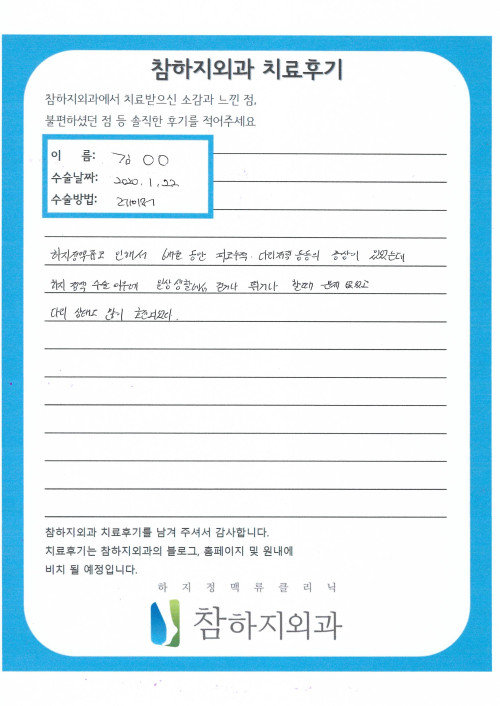 참하지외과 치료후기
참하지외과에서 치료받으신 소감과 느낀 점,
불편하셨던 점 등 솔직한 후기를 적어주세요
이 름: 김 ○○
수술날짜: 2020. 1. 22
수술방법: 레이저
하지정맥류로 인해서 6개월 동안 피로누적, 다리저림 등등의 증상이 있었는데
하지 정맥 수술 이후에 일상생활에서 걷거나 뛰거나 할때 문제 없었고
다리 상태도 많이 호전되었다.
참하지외과 치료후기를 남겨 주셔서 감사합니다.
치료후기는 참하지외과의 블로그, 홈페이지 및 원내에
비치 될 예정입니다.
하지정맥류클리닉
참하지외과